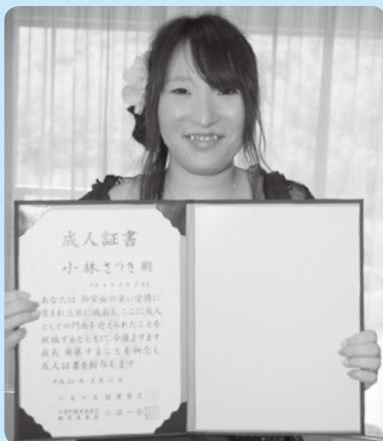 成人証書
小林さつき殿
あなたは御家族の深い愛情に
育まれ立派に成長し ここに成人
としての門出を迎えられたことを
祝福するとともに 今後ますます
成長 発展することを祈念し
成人証書を授与します
平成